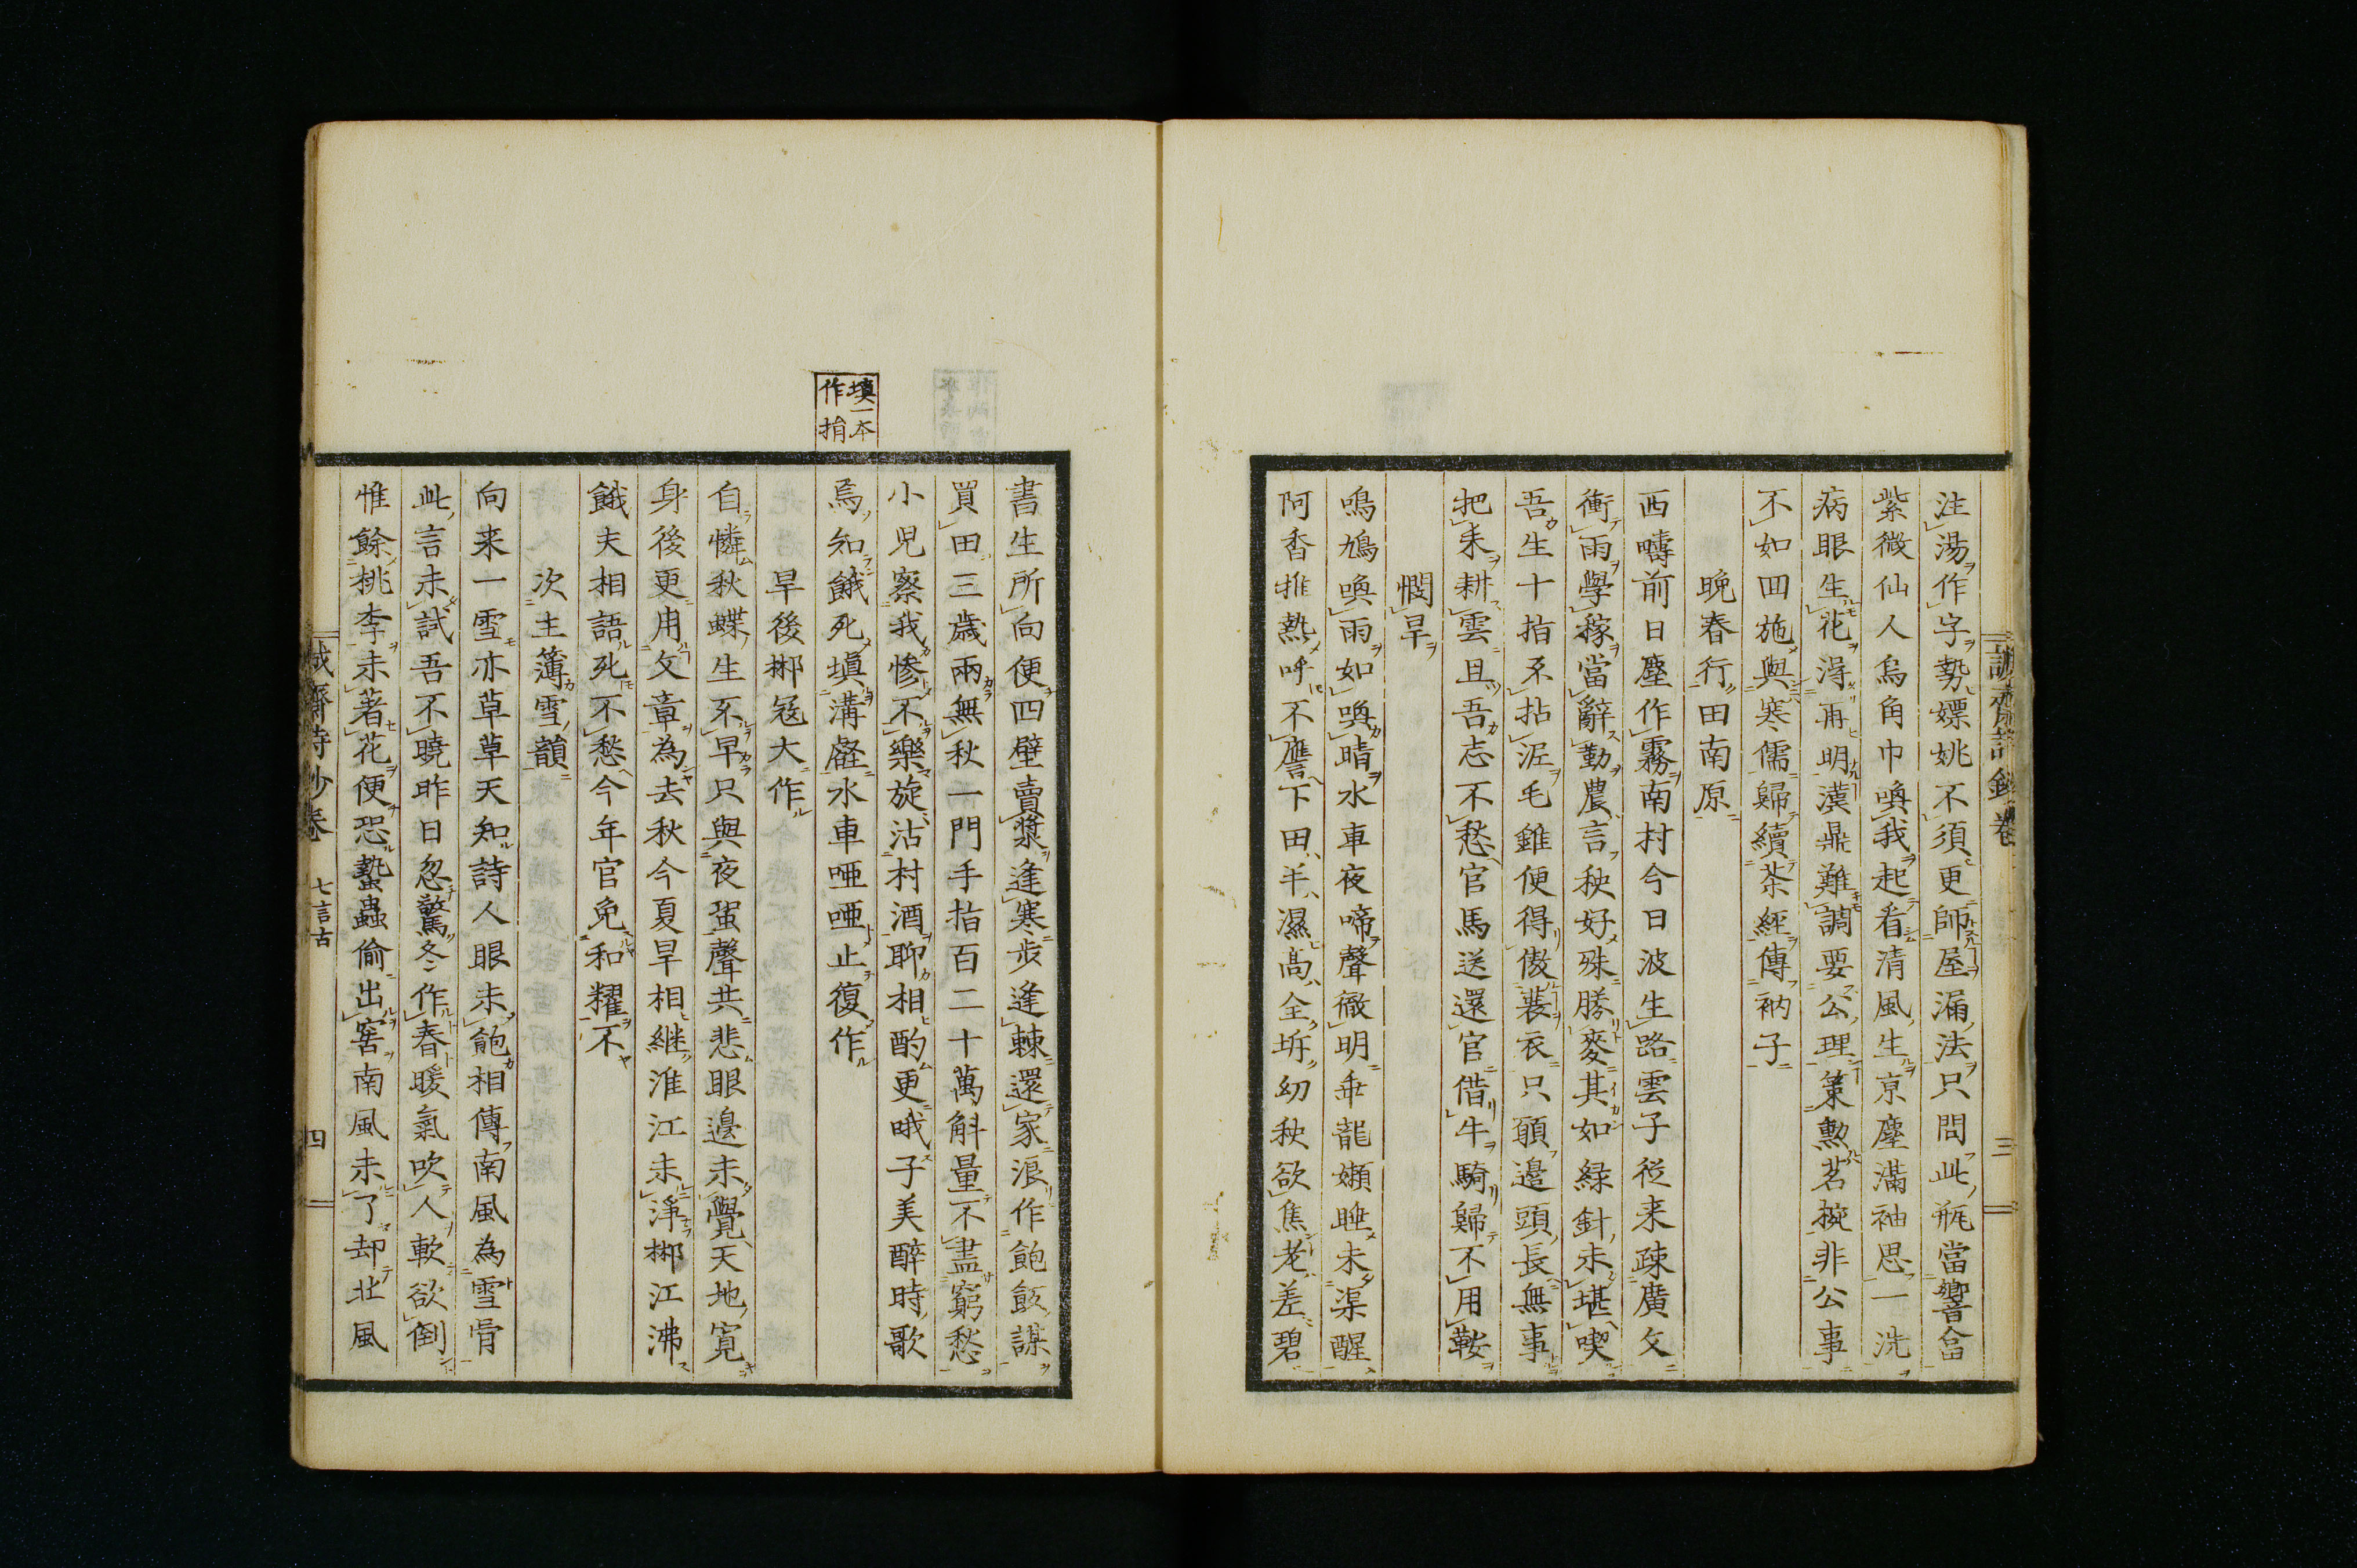 注湯作字勢嫖姚不須更師屋漏法只問此瓶當響答
紫微仙人烏角巾喚我起看清風生京塵滿袖思一洗
病眼生花得再明漢鼎難調要公理策勲茗椀非公事
不如回施與寒儒歸續茶經傳衲子
晩春行田南原
西疇前日塵作霧南村今日波生路雲子従来疎廣文
衝雨學稼當辭勤農言秧好殊勝麥其如緑針未堪喫
吾生十指不拈泥毛錐便得傲蓑衣只願邊頭長無事
把耒耕雲且吾志不愁官馬送還官借牛騎歸不用鞍
憫旱
鳴鳩喚雨如喚晴水車夜啼聲徹明乖龍嬾睡未渠醒
阿香推熱呼不譍下田半濕高全坼幼秧欲焦老差碧
誠齋詩鈔卷
三
填一本
作捐
書生所向便四壁賣漿逢寒步逢棘還家浪作飽飯謀
買田三歳兩無秋一門手指百二十萬斛量不盡窮愁
小児察我慘不樂旋沽村酒聊相酌更哦子美醉時歌
焉知餓死填溝壑水車啞啞止復作
旱後郴寇大作
自憐秋蝶生不早只與夜蛩聲共悲眼邊未覺天地寛
身後更用文章為去秋今夏旱相継淮江未淨郴江沸
餓夫相語死不愁今年官免和糴不
次主簿雪韻
向来一雪亦草草天知詩人眼未飽相傳南風為雪骨
此言未試吾不曉昨日忽驚冬作春暖氣吹人軟欲倒
惟餘桃李未著花便恐蟄蟲偷出窖南風未了却北風
誠齋詩鈔卷 七言古
四